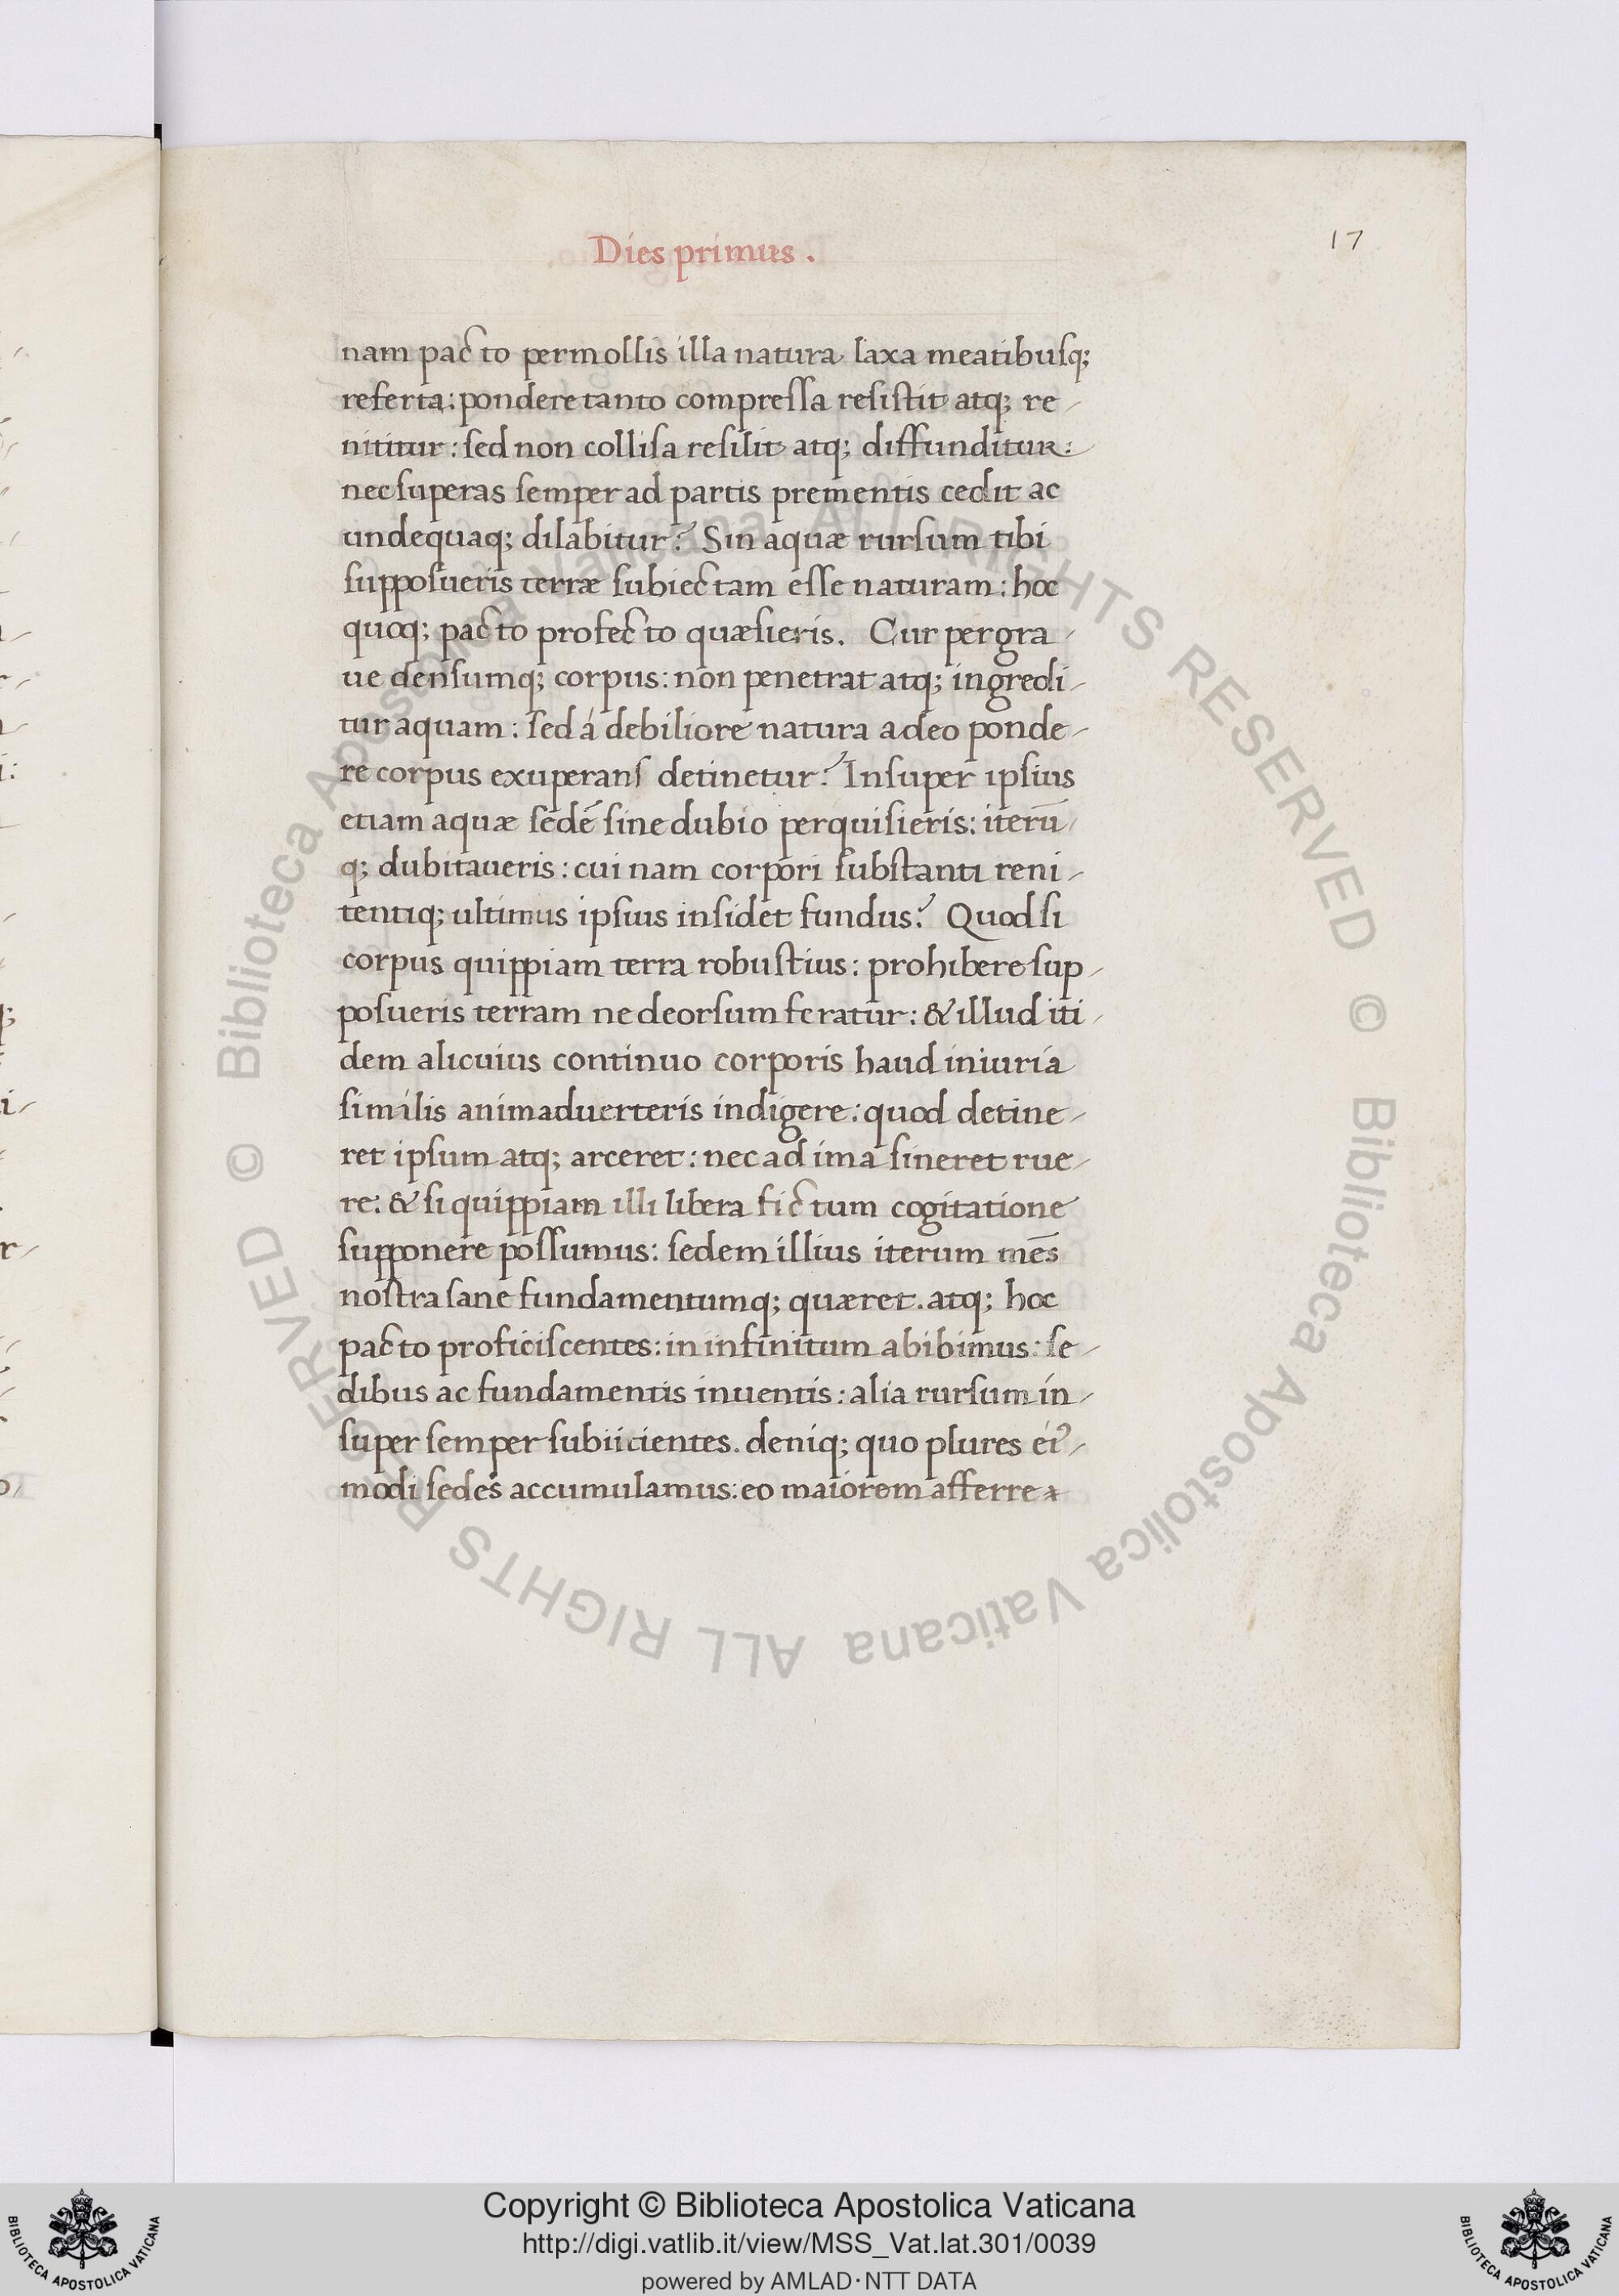 Dies primus .
17
nam pacto permollis illa natura laxa meatibusq;
referta: pondere tanto compressa resistit atq; re-
nititur: sed non collisa resilit atq; diffunditur:
nec superas semper ad partis prementis cedit ac
undequaq; dilabitur? Sin aquæ rursum tibi
supposueris terræ subiectam esse naturam: hoc
quoq; pacto profecto quæsieris. Cur pergra-
ue densumq; corpus: non penetrat atq; ingredi-
tur aquam: sed á debiliore natura adeo ponde-
re corpus exuperans detinetur? Insuper ipsius
etiam aquæ sedē sine dubio perquisieris: iterū
q; dubitaueris: cui nam corpori substanti reni-
tentiq; ultimus ipsius insidet fundus? Quod si
corpus quippiam terra robustius: prohibere sup-
posueris terram ne deorsum feratur: & illud iti-
dem alicuius continuo corporis haud iniuria
similis animaduerteris indigere: quod detine-
ret ipsum atq; arceret: nec ad ima sineret rue-
re: & si quippiam illi libera fictum cogitatione
supponere possumus: sedem illius iterum mēs
nostra sane fundamentumq; quæret. atq; hoc
pacto proficiscentes: in infinitum abibimus: se-
dibus ac fundamentis inuentis: alia rursum in-
super semper subiicientes. deniq; quo plures ei⁹-
modi sedes accumulamus: eo maiorem afferre
Copyright © Biblioteca Apostolica Vaticana
http://digi.vatlib.it/view/MSS_Vat.lat.301/0039
powered by AMLAD·NTT DATA
BIBLIOTECA APOSTOLICA VATICANA
BIBLIOTECA APOSTOLICA VATICANA
© Biblioteca Apostolica Vaticana ALL RIGHTS RESERVED © Biblioteca Apostolica Vaticana ALL RIGHTS RESERVED